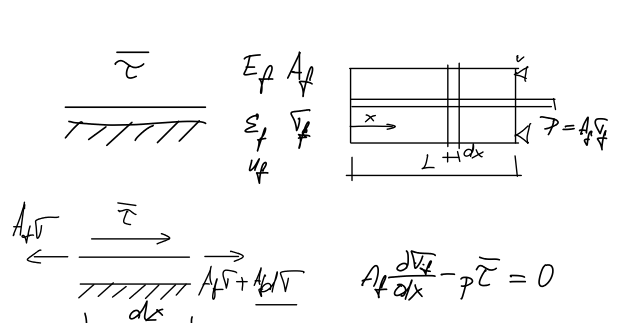 τ̅ E_f A_f
ε_f σ_f
u_f
x
L dx
P = A_f σ_f
A_f σ
τ̅
A_f σ + A_f dσ
dx
A_f dσ_f/dx - p τ̅ = 0